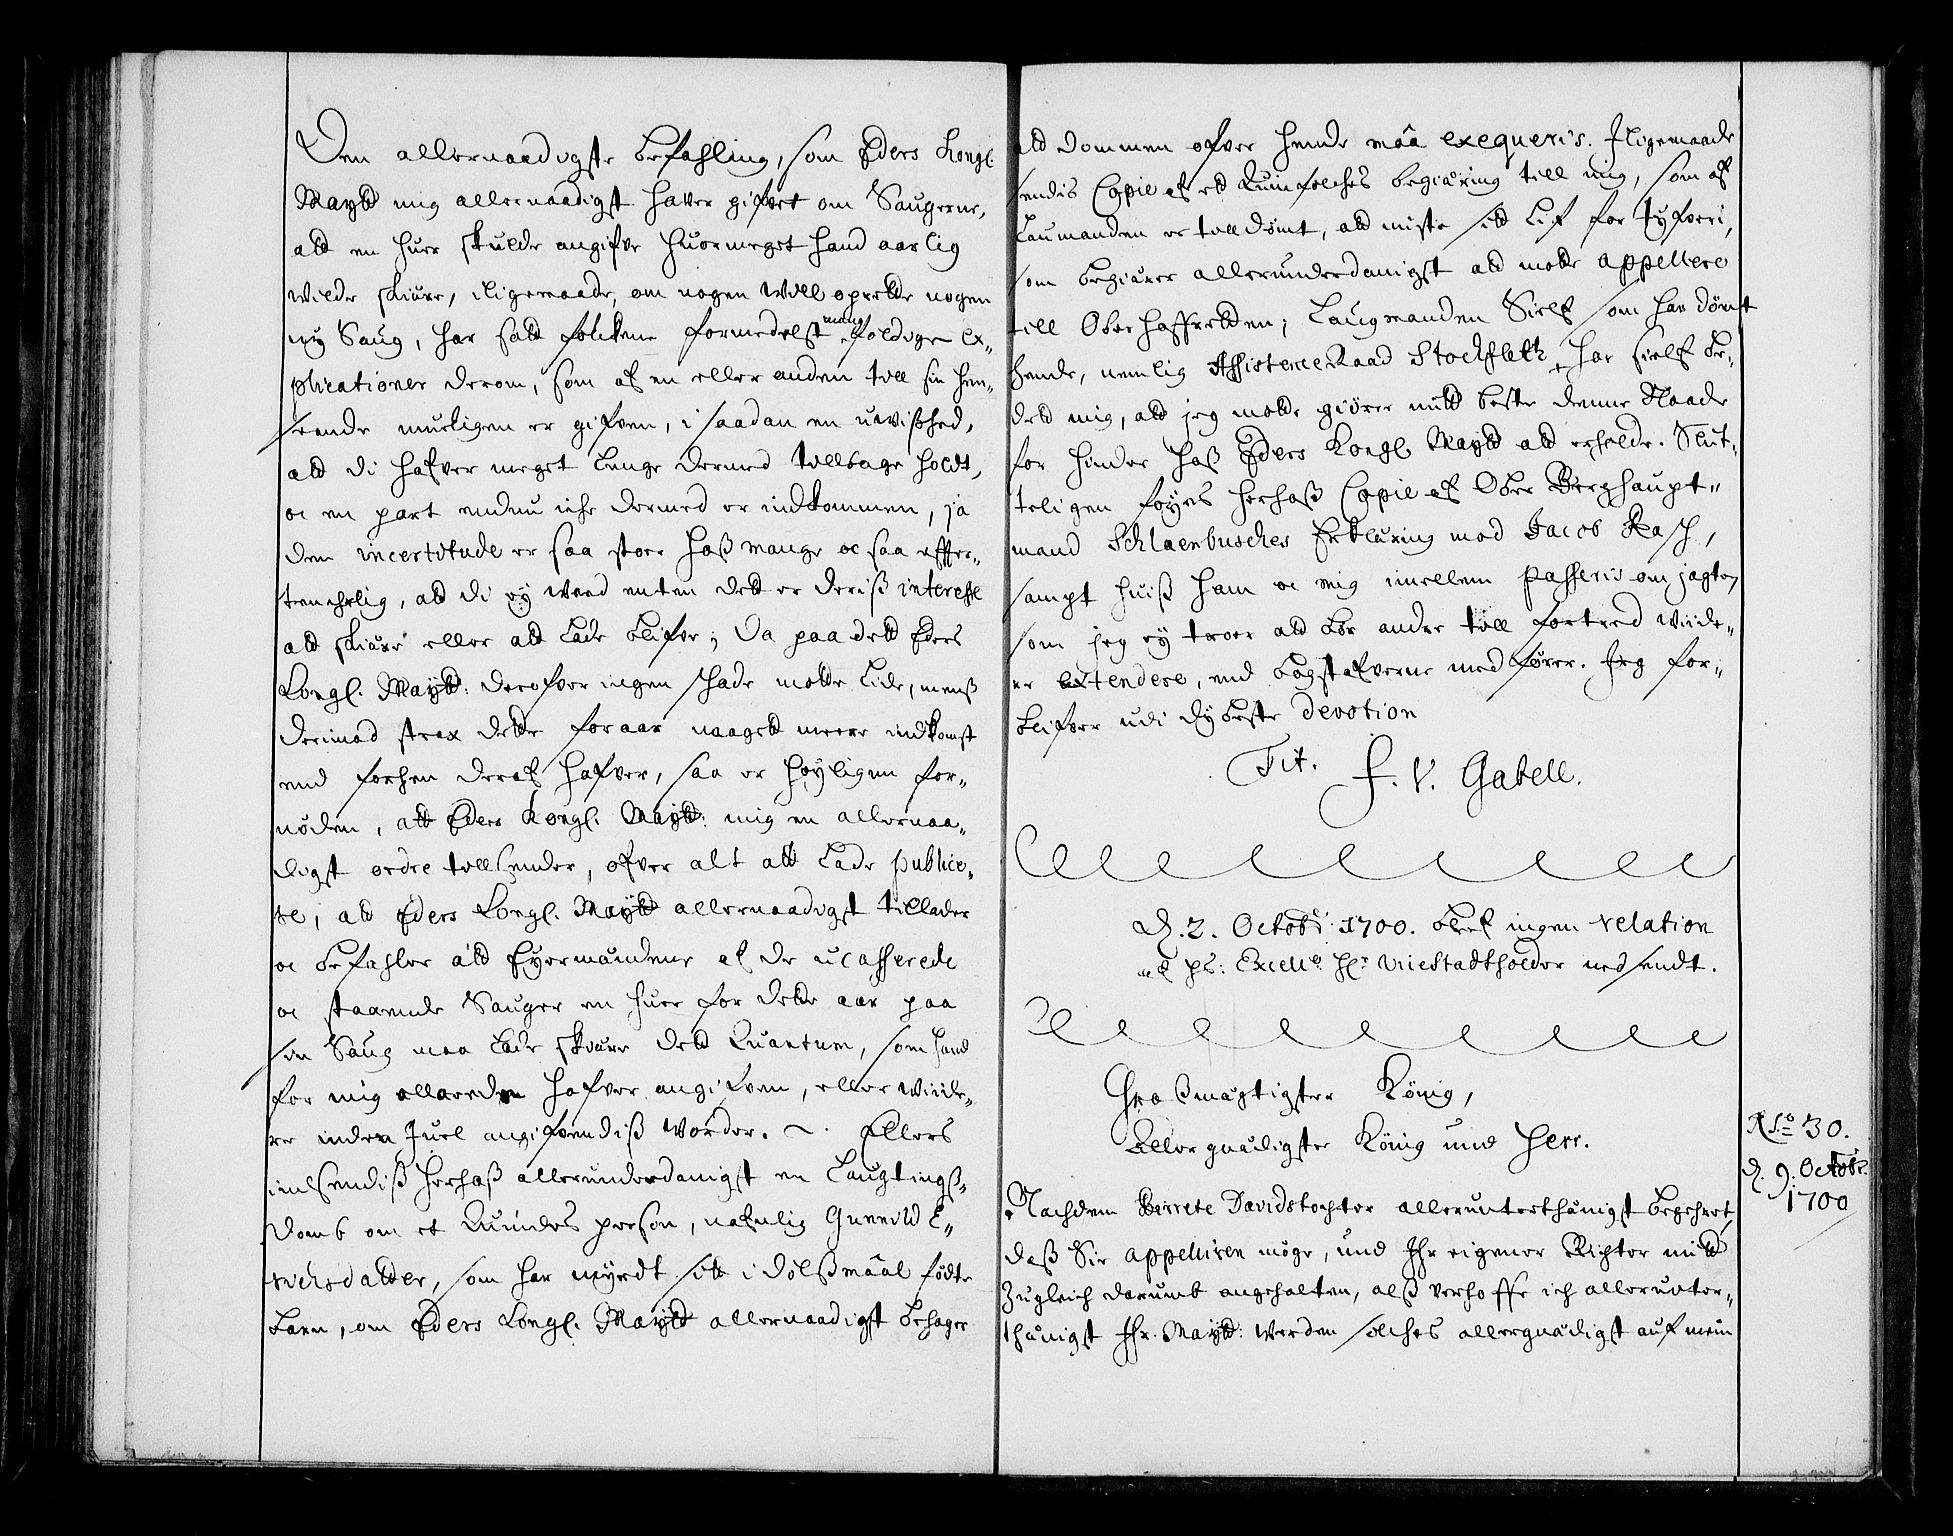 Den allernaadigste befahling, som Eders Kongl.
Maytt mig allernaadigst hafver gifvet om Saugerne,
att en huer skulde angifve huormeget hand aarlig
wilde skiære, iligemaade, om nogen will oprette nogen
ny Saug, har satt folckene formedelst mang foldige ex„
plicationer derom, som af en eller anden till sin hen„
seende mueligen er gifven, i saadan en uwißhed,
att di hafver meget lenge dermed tillbage holdt,
oc en part endnu iche dermed er indkommen, ja
den incertitude er saa stoer hoß mange oc saa effter„
tenchelig, att di ey weed enten dett er deriß interesse
att skiære eller att lade blifve; Da paa dett Eders
Kongl. Maytt: derofver ingen schade motte lide, menß
derimod strax dette foraar naaget meere indkomst
end forhen deraf hafver, saa er höyligen for„
nöden, att Eders Kongl. Maytt: mig en allernaa„
digst ordre tillsender, ofver alt att lade publice„
re, att Eders Kongl. Maytt allernaadigst tillader
oc befahler att Eyermændene af de ucasserede
oc staaende Sauger en huer for dette aar paa
sin Saug maa lade skiære dett Quantum, som hand
for mig allereden hafver angifven, eller wiide„
re inden Juel angifvendiß worder. ~. Ellers
indsendiß herhoß allerunderdanigst en Laugtingß„
domb om et Quindes person, nafnlig Gunnild E„
richsdatter, som har myrdt sitt i dölßmaal födte
barn, om Eders Kongl. Maytt allernaadigst behager
att dommen ofver hende maa exequeris. Iligemaade
sendis Copie af ett Quinfolches begiæring till mig, som af
Laumanden er tilldömt, att miste sitt Lif for tyfveri,
som begiærer allerunderdanigst att motte appellere
till Oberhoffretten; Laugmanden Sielf som har dömt
hende, nemlig Assistence Raad Stockfleth, har sielf be„
dett mig, att jeg motte giöre mitt beste denne Naade
for hinder hoß Eders Kongl. Maytt att erholde. Slut„
teligen föyes herhoß Copie af Ober Berghaupt„
mand Schlaenbusches Erklæring mod Jacob Rasch,
sampt huiß ham oc mig imellem passeris om jagten
som jeg ey troer att bör andre till fortred wiide„
re extendere, end bogstafverne medfører. Jeg for„
blifver udi dybeste devotion
Tit. F. V. Gabell.
D. 2. Octobr: 1700. blef ingen relation
af hs: Excelle Hr. Viiestadtholder nedsendt.
Großmæchtigster König,
Allergnädigster König und Herr.
No 30.
D. 9. Octobr.
1700
Nachdem Birrete Davidstochter allerunterthänigst begehret
daß Sie appelliren möge, und Ihr eigener Richter mitt
zugleich darumb angehalten, alß verhoffe ich allerunter„
thänigst Ihr. Maytt: werden solches allergnädigst auf mein